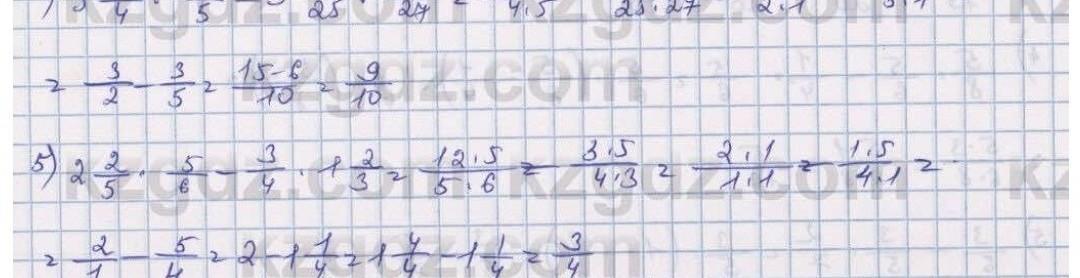 = 3/2 - 3/5 = 15-6/10 = 9/10
5) 2 2/5 · 5/6 - 3/4 · 1 2/3 = 12·5/5·6 - 3·5/4·3 = 2·1/1·1 - 1·5/4·1 =
= 2/1 - 5/4 = 2 - 1 1/4 = 1 4/4 - 1 1/4 = 3/4
kzgdz.com